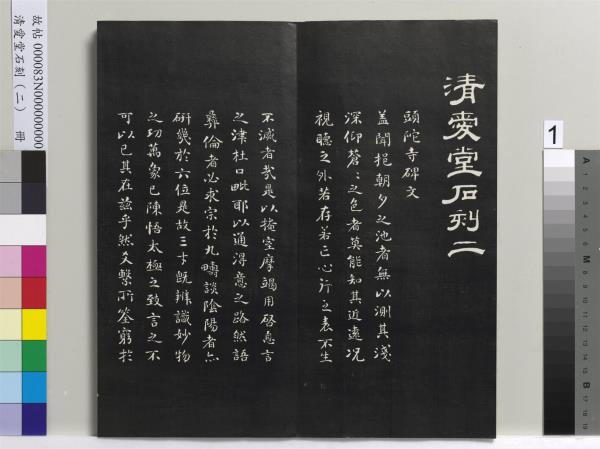 清愛堂石刻二
頭陀寺碑文
蓋聞挹朝夕之池者無以測其淺
深仰蒼〻之色者莫能知其近遠况
視聽之外若存若亡心行之表不生
不滅者哉是以掩室摩竭用啓息言
之津杜口毗耶以通得意之路然語
彝倫者必求宗於九疇談陰陽者亦
研幾於六位是故三才既辨識妙物
之功萬象已陳悟太極之致言之不
可以已其在兹乎然爻繫所筌窮於
故帖 000083N000000000
清愛堂石刻(二) 冊
1
A 1 2 3 4 5 6 M 8 9 10 11 12 13 14 15 B 17 18 19